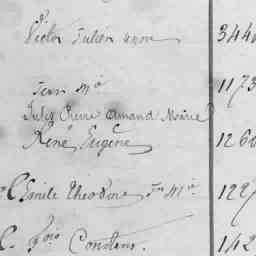 Victor Julien 344
Jean Mie 1173
Jules Pierre Amand Marie
René Eugène 1260
Emile Théodore Jn Mie 122
C. Fois Constant. 142